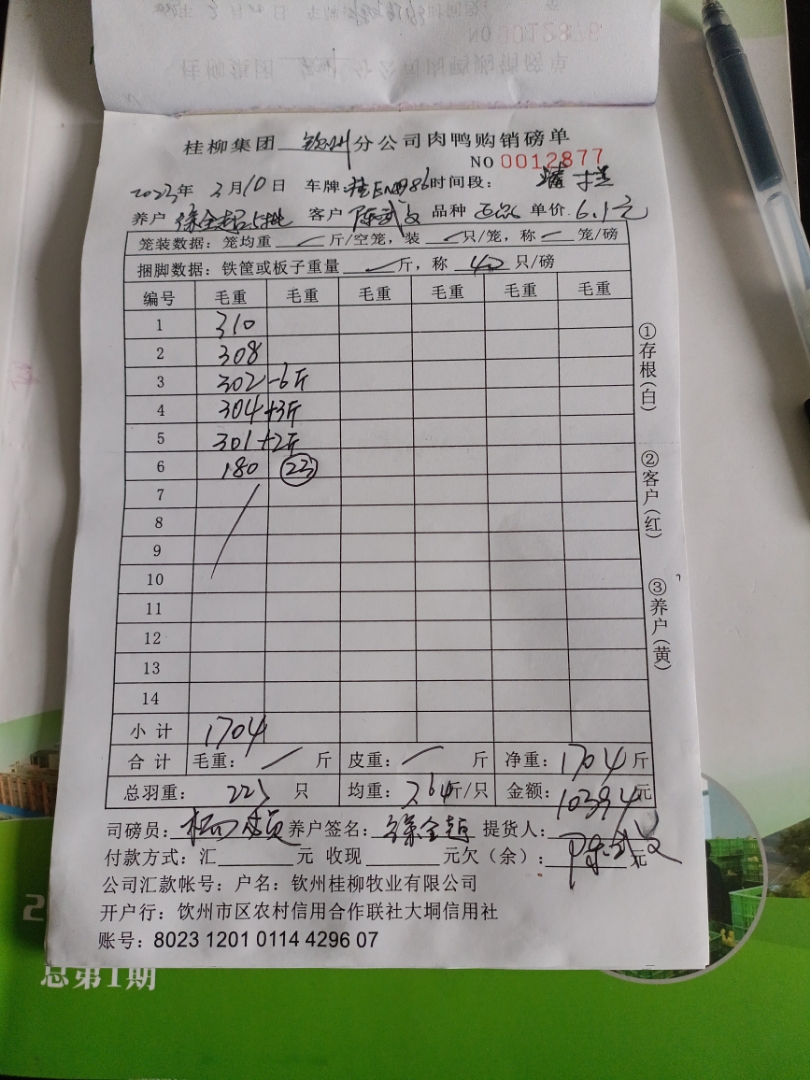 桂柳集团 钦州 分公司肉鸭购销磅单
NO 0012877
2023年 3月10日 车牌 时间段:
养户 徐全超 客户 陈武文 品种 单价 6.1元
笼装数据: 笼均重 斤/空笼, 装 只/笼, 称 笼/磅
捆脚数据: 铁筐或板子重量 斤, 称 40 只/磅
编号 毛重 毛重 毛重 毛重 毛重 毛重
1 310
2 308
3 302 -6斤
4 304 +3斤
5 301 +2斤
6 180 23
7
8
9
10
11
12
13
14
小计 1704
合计 毛重: 斤 皮重: 斤 净重: 1704 斤
总羽重: 223 只 均重: 7.64 斤/只 金额: 10394 元
司磅员: 养户签名: 徐全超 提货人: 陈武文
付款方式: 汇 元 收现 元欠(余): 元
公司汇款帐号: 户名: 钦州桂柳牧业有限公司
开户行: 饮州市区农村信用合作联社大垌信用社
账号: 8023 1201 0114 4296 07
①存根(白)
②客户(红)
③养户(黄)
总第1期